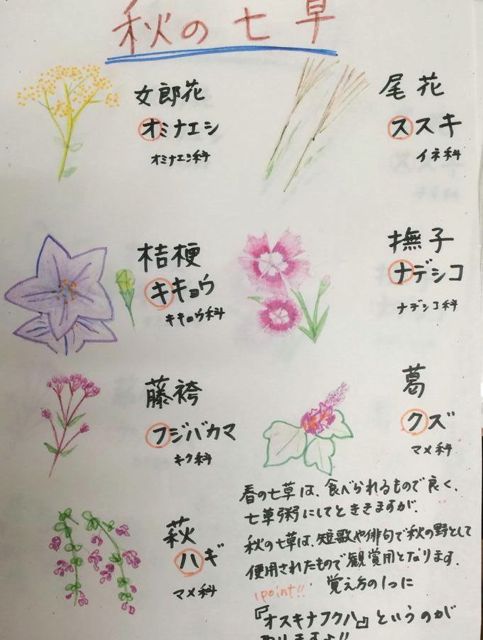 秋の七草
女郎花
オミナエシ
オミナエシ科
尾花
ススキ
イネ科
桔梗
キキョウ
キキョウ科
撫子
ナデシコ
ナデシコ科
藤袴
フジバカマ
キク科
葛
クズ
マメ科
萩
ハギ
マメ科
春の七草は、食べられるもので良く、
七草粥にしてとききますが、
秋の七草は、短歌や俳句で秋の野として
使用されたもので観賞用となります。
point!!
覚え方の1つに
『オスキナフクハ』というのが
ありますよ!!